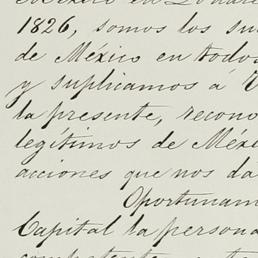 en Londres
1826, somos los su
de México en todos
y suplicamos á V
la presente, recono
legítimos de Méxi
acciones que nos dá
Oportunam
Capital la persona